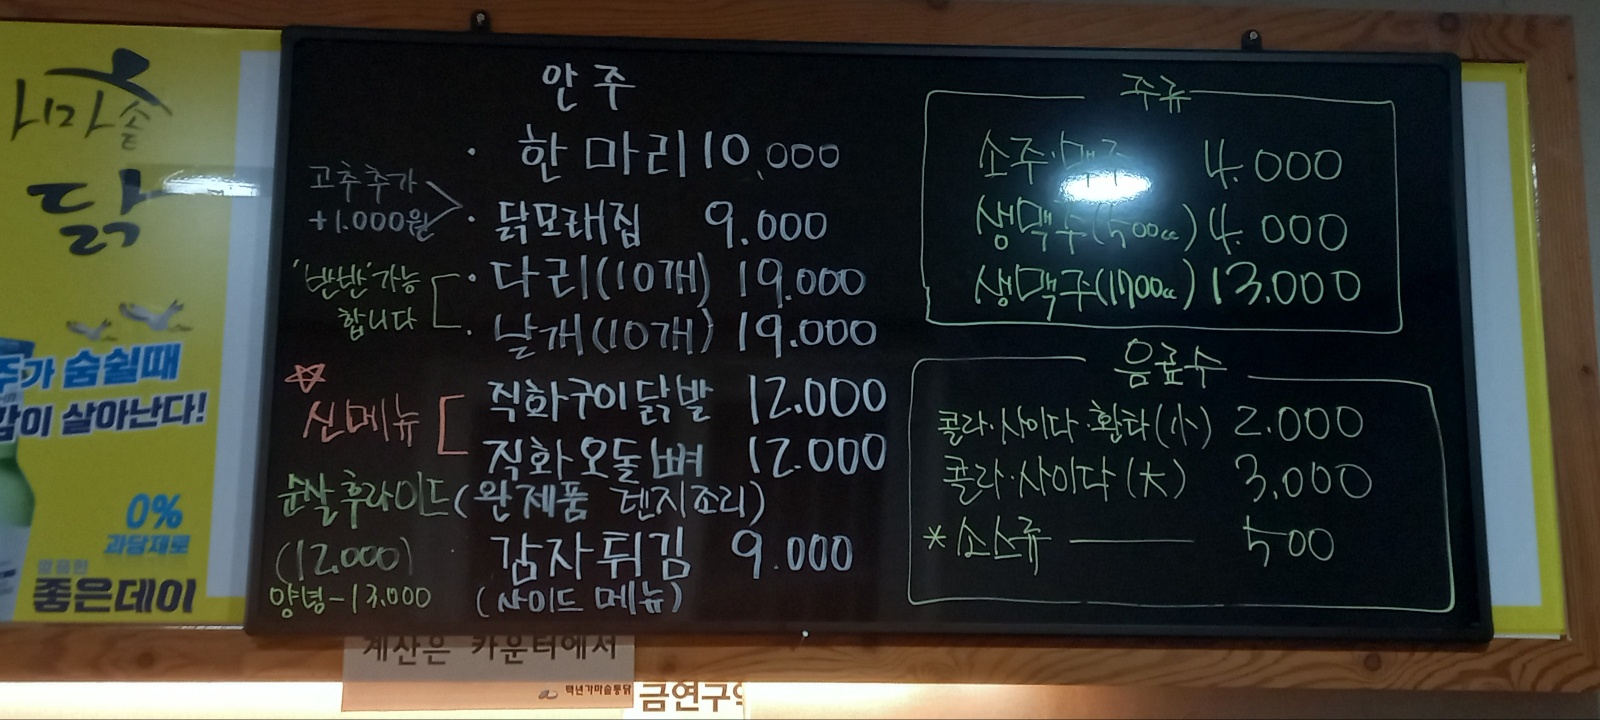 가마솥
닭
숨쉴때
살아난다!
0%
과당제로
좋은데이
안주
한마리 10,000
고추추가
+1.000원
닭모래집 9.000
'반반' 가능
합니다
다리(10개) 19.000
날개(10개) 19.000
신메뉴
직화구이닭발 12.000
직화오돌뼈 12.000
(완제품 덴지조리)
순살후라이드
(12.000)
양념-13.000
감자튀김 9.000
(사이드 메뉴)
주류
소주·맥주 4.000
생맥주(500cc) 4.000
생맥주(1700cc) 13.000
음료수
콜라·사이다·환타(小) 2.000
콜라·사이다(大) 3.000
*소스류 500
계산은 카운터에서
백년가마솥통닭